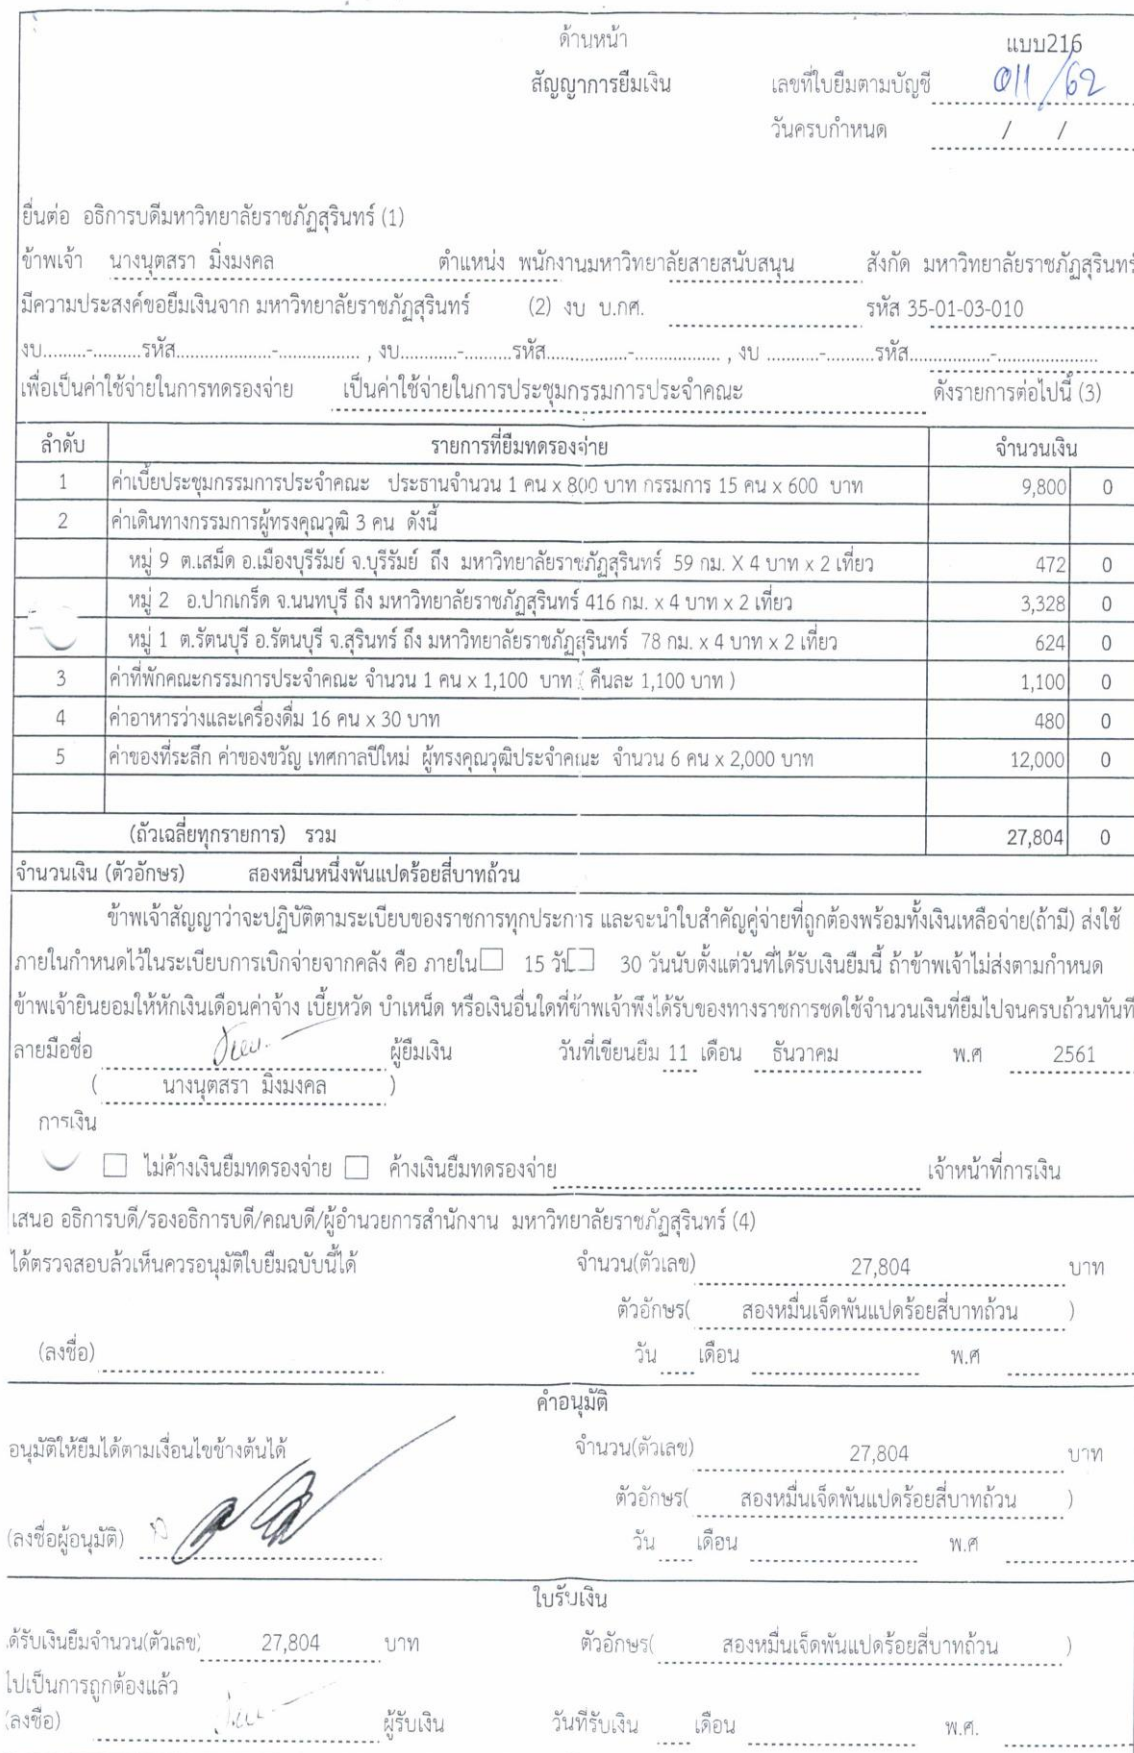 ด้านหน้า แบบ216
สัญญาการยืมเงิน เลขที่ใบยืมตามบัญชี 011/62
วันครบกำหนด / /
ยื่นต่อ อธิการบดีมหาวิทยาลัยราชภัฏสุรินทร์ (1)
ข้าพเจ้า นางนุตสรา มิ่งมงคล ตำแหน่ง พนักงานมหาวิทยาลัยสายสนับสนุน สังกัด มหาวิทยาลัยราชภัฏสุรินทร์
มีความประสงค์ขอยืมเงินจาก มหาวิทยาลัยราชภัฏสุรินทร์ (2) งบ บ.กศ. รหัส 35-01-03-010
งบ.........-..........รหัส....................-................. , งบ............-..........รหัส.................-.................. , งบ ...........-..........รหัส.................-.....................
เพื่อเป็นค่าใช้จ่ายในการทดรองจ่าย เป็นค่าใช้จ่ายในการประชุมกรรมการประจำคณะ ดังรายการต่อไปนี้ (3)
ลำดับ รายการที่ยืมทดรองจ่าย จำนวนเงิน
1 ค่าเบี้ยประชุมกรรมการประจำคณะ ประธานจำนวน 1 คน x 800 บาท กรรมการ 15 คน x 600 บาท 9,800 0
2 ค่าเดินทางกรรมการผู้ทรงคุณวุฒิ 3 คน ดังนี้
หมู่ 9 ต.เสม็ด อ.เมืองบุรีรัมย์ จ.บุรีรัมย์ ถึง มหาวิทยาลัยราชภัฏสุรินทร์ 59 กม. X 4 บาท x 2 เที่ยว 472 0
หมู่ 2 อ.ปากเกร็ด จ.นนทบุรี ถึง มหาวิทยาลัยราชภัฏสุรินทร์ 416 กม. x 4 บาท x 2 เที่ยว 3,328 0
หมู่ 1 ต.รัตนบุรี อ.รัตนบุรี จ.สุรินทร์ ถึง มหาวิทยาลัยราชภัฏสุรินทร์ 78 กม. x 4 บาท x 2 เที่ยว 624 0
3 ค่าที่พักคณะกรรมการประจำคณะ จำนวน 1 คน x 1,100 บาท ( คืนละ 1,100 บาท ) 1,100 0
4 ค่าอาหารว่างและเครื่องดื่ม 16 คน x 30 บาท 480 0
5 ค่าของที่ระลึก ค่าของขวัญ เทศกาลปีใหม่ ผู้ทรงคุณวุฒิประจำคณะ จำนวน 6 คน x 2,000 บาท 12,000 0
(ถัวเฉลี่ยทุกรายการ) รวม 27,804 0
จำนวนเงิน (ตัวอักษร) สองหมื่นหนึ่งพันแปดร้อยสี่บาทถ้วน
ข้าพเจ้าสัญญาว่าจะปฏิบัติตามระเบียบของราชการทุกประการ และจะนำใบสำคัญคู่จ่ายที่ถูกต้องพร้อมทั้งเงินเหลือจ่าย(ถ้ามี) ส่งใช้
ภายในกำหนดไว้ในระเบียบการเบิกจ่ายจากคลัง คือ ภายใน☐ 15 วัน☐ 30 วันนับตั้งแต่วันที่ได้รับเงินยืมนี้ ถ้าข้าพเจ้าไม่ส่งตามกำหนด
ข้าพเจ้ายินยอมให้หักเงินเดือนค่าจ้าง เบี้ยหวัด บำเหน็ด หรือเงินอื่นใดที่ข้าพเจ้าพึงได้รับของทางราชการชดใช้จำนวนเงินที่ยืมไปจนครบถ้วนทันที
ลายมือชื่อ ผู้ยืมเงิน วันที่เขียนยืม 11 เดือน ธันวาคม พ.ศ 2561
( นางนุตสรา มิ่งมงคล )
การเงิน
☐ ไม่ค้างเงินยืมทดรองจ่าย ☐ ค้างเงินยืมทดรองจ่าย เจ้าหน้าที่การเงิน
เสนอ อธิการบดี/รองอธิการบดี/คณบดี/ผู้อำนวยการสำนักงาน มหาวิทยาลัยราชภัฏสุรินทร์ (4)
ได้ตรวจสอบล้วเห็นควรอนุมัติใบยืมฉบับนี้ได้ จำนวน(ตัวเลข) 27,804 บาท
ตัวอักษร( สองหมื่นเจ็ดพันแปดร้อยสี่บาทถ้วน )
(ลงชื่อ) วัน เดือน พ.ศ
คำอนุมัติ
อนุมัติให้ยืมได้ตามเงื่อนไขข้างต้นได้ จำนวน(ตัวเลข) 27,804 บาท
ตัวอักษร( สองหมื่นเจ็ดพันแปดร้อยสี่บาทถ้วน )
(ลงชื่อผู้อนุมัติ) วัน เดือน พ.ศ
ใบรับเงิน
ด้รับเงินยืมจำนวน(ตัวเลข) 27,804 บาท ตัวอักษร( สองหมื่นเจ็ดพันแปดร้อยสี่บาทถ้วน )
ไปเป็นการถูกต้องแล้ว
(ลงชื่อ) ผู้รับเงิน วันที่รับเงิน เดือน พ.ศ.